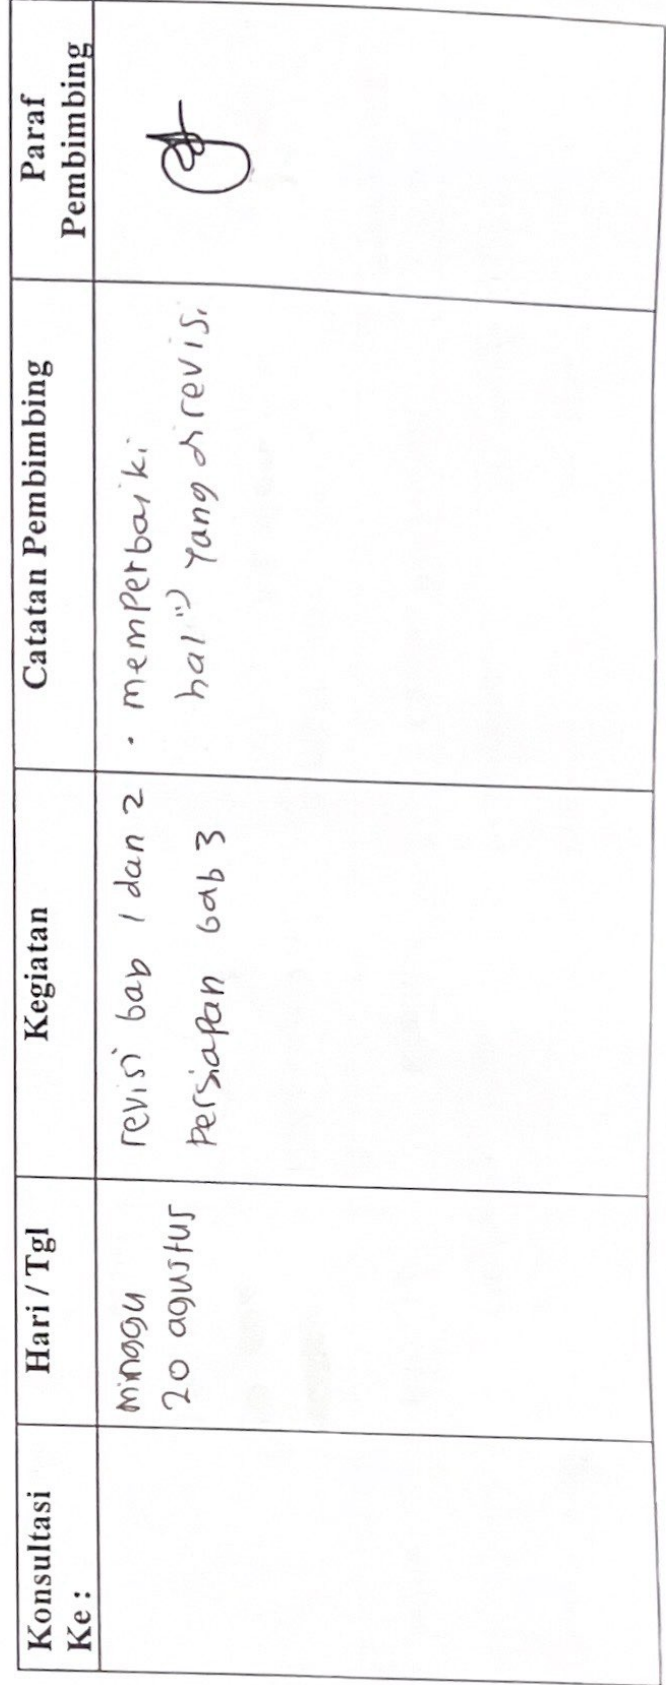 Konsultasi
Ke :
Hari / Tgl
Kegiatan
Catatan Pembimbing
Paraf
Pembimbing
minggu
20 agustus
revisi bab 1 dan 2
Persiapan bab 3
· memperbaiki
hal") yang direvisi